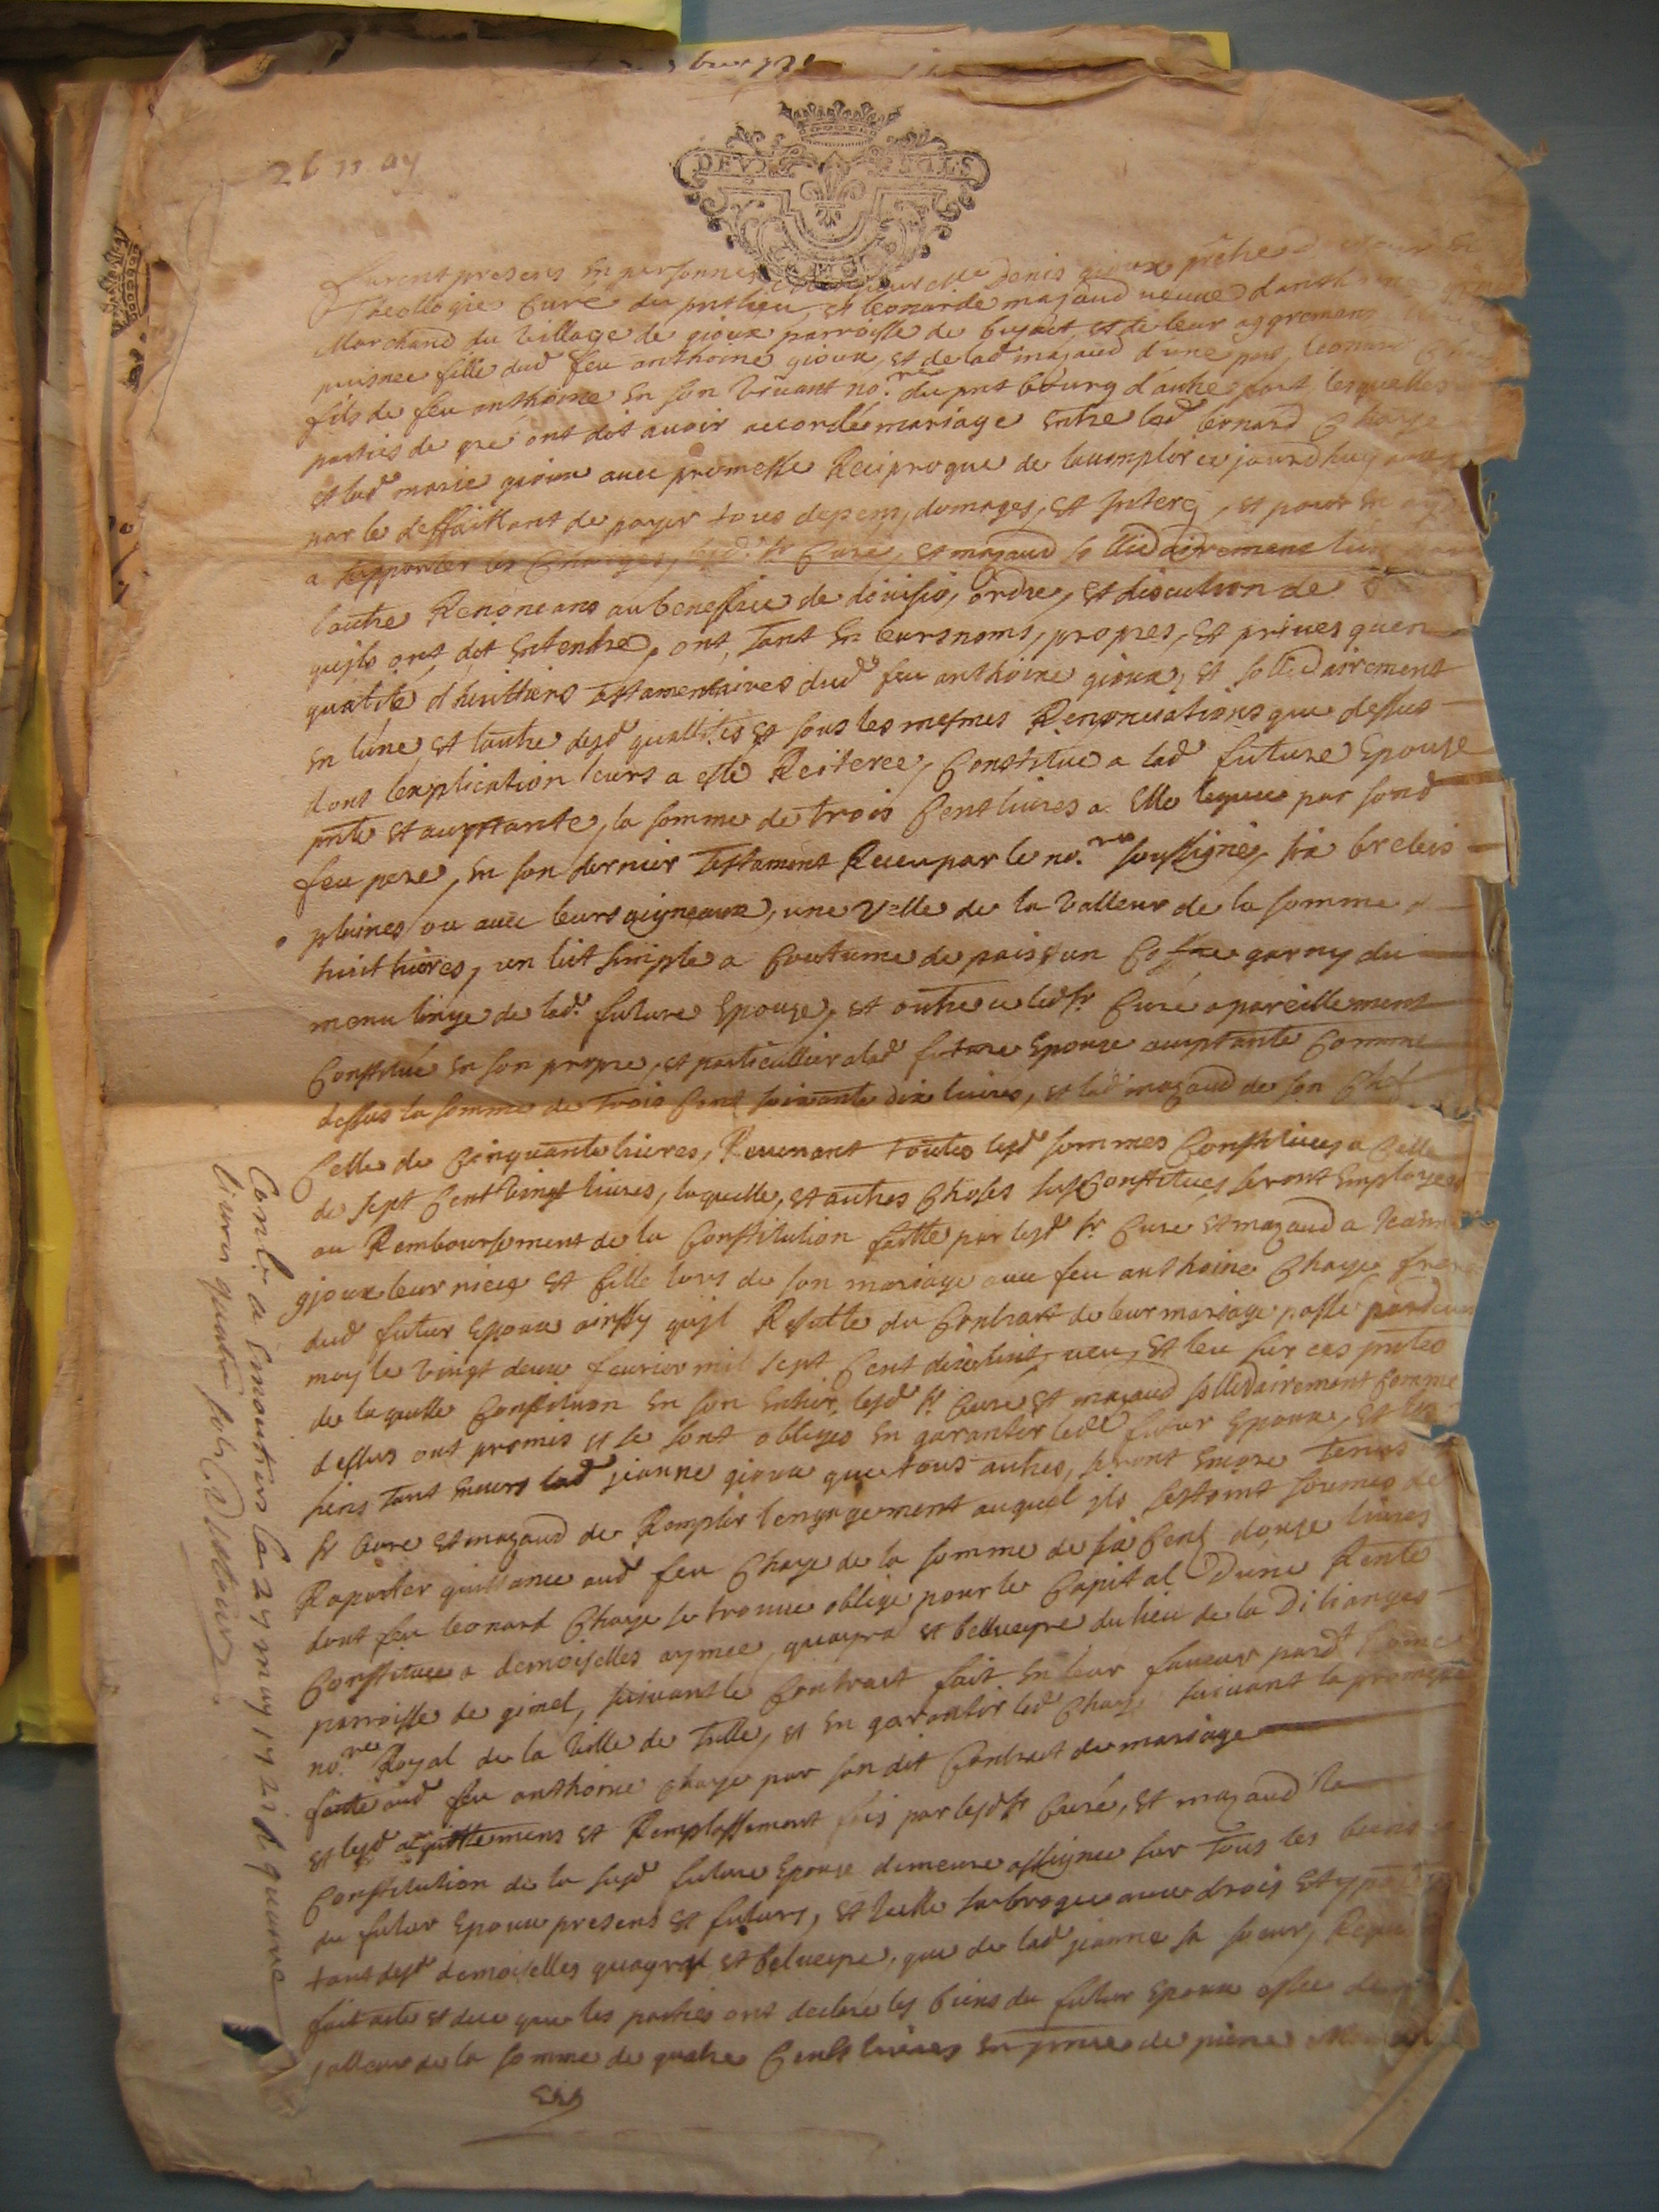 26 11. 
DEUX SOLS
furent presens En personnes Denis gioux prêtre
Theollogie Curé du pnt lieu, Et leonarde mazaud veuve danthoine
Marchand du village de gioux parroisse de bujaet et de leur aggremant
puisnée fille dud feu anthoine gioux, et de lad mazaud d'une part, leonard Chaze
fils de feu anthoine En son vivant no.re du pnt bourg d'autre part, lesquelles
parties de gré ont dit avoir accordé mariage Entre led leonard Chaze
et lad marie gioux avec promesse Reciproque de laccomplir ce jourdhuy
par le deffaillant de payer tous depens, domages, et Interes, et pour En
a supporter les Charges, lesd. sr Curé, et mazaud sollidairement lun
lautre Renoncans au beneffice de division, ordre, et discution de
quils ont dit Entendre, ont, tant En leurs noms, propres, et privés quen
qualité d'heritiers testamentaires dud feu anthoine gioux, et sollidairement
En lune, et lautre desd quallités et sous les mesmes Renonciations que dessus
dont lexplication leurs a esté Reiteree, Constitué a lad future Epouse
pnte et acceptante, la somme de trois Cent livres a Elle leguee par sond
feu pere, En son dernier Testament Receu par le no.re soussigné, six brebis
pleines ou avec leurs aigneaux, une velle de la valleur de la somme de
huit livres, un lict simple a Coutume de pais, un Coffre garny du
menu linge de lad. future Epouse, et outre ce led sr Curé a pareillement
Constitué En son propre, et particullier a lad future Epouse acceptante Comme
dessus la somme de Trois Cent soixante dix livres, et lad mazaud de son Chef
Celle de Cinquante livres, Revenant toutes lesd sommes Constituees a Celle
de sept Cent vingt livres, laquelle, et autres Choses susd Constituées seront Employees
au Remboursement de la Constitution faitte par lesd sr Curé et mazaud a Jeanne
gioux leur niece et fille lors de son mariage avec feu anthoine Chaze frere
dud futur Epoux ainsy quil Resulte du Contract de leur mariage passé pardevant
moy le vingt deux fevrier mil sept Cent dixhuit, veu, et leu sur ces pntes
de laquelle Constitution En son Entier, lesd sr Curé et mazaud sollidairement Comme
dessus ont promis et se sont obligés En garantir led futur Epoux, et les
siens tant Envers lad jeanne gioux que tous autres, seront Encore Tenus
sr Curé et mazaud de Remplir lengagement auquel ils sestoint soumis de
Raporter quittance aud feu Chaze de la somme de six Cens douze livres
dont feu leonard Chaze se trouve obligé pour le Capital D'une Rente
Constituee a demoiselles aymee, quayra et belveyre du lieu de la Dilianges
parroisse de gimel, suivant le Contract fait En leur faveur pard
no.re Royal de la ville de Tulle, et En garantir led Chaze suivant la promesse
faitte aud feu anthoine Chaze par son dit Contract de mariage
et lesd acquittemens et Remplassement fais par lesd sr Curé, et mazaud la
Constitution de la susd future Epouse demeure assignee sur tous les biens
du futur Epoux presens et futurs, et Icelle subrogee aux drois et
tant desd demoiselles quayra et belveyre, que de lad jeanne sa soeur,
fait acte et que les parties ont declaré les biens du futur Epoux estre de
valleur de la somme de quatre Cents livres En
Conle a Eimoutiers le 29 may 1721 R quatre
livres quatre sols